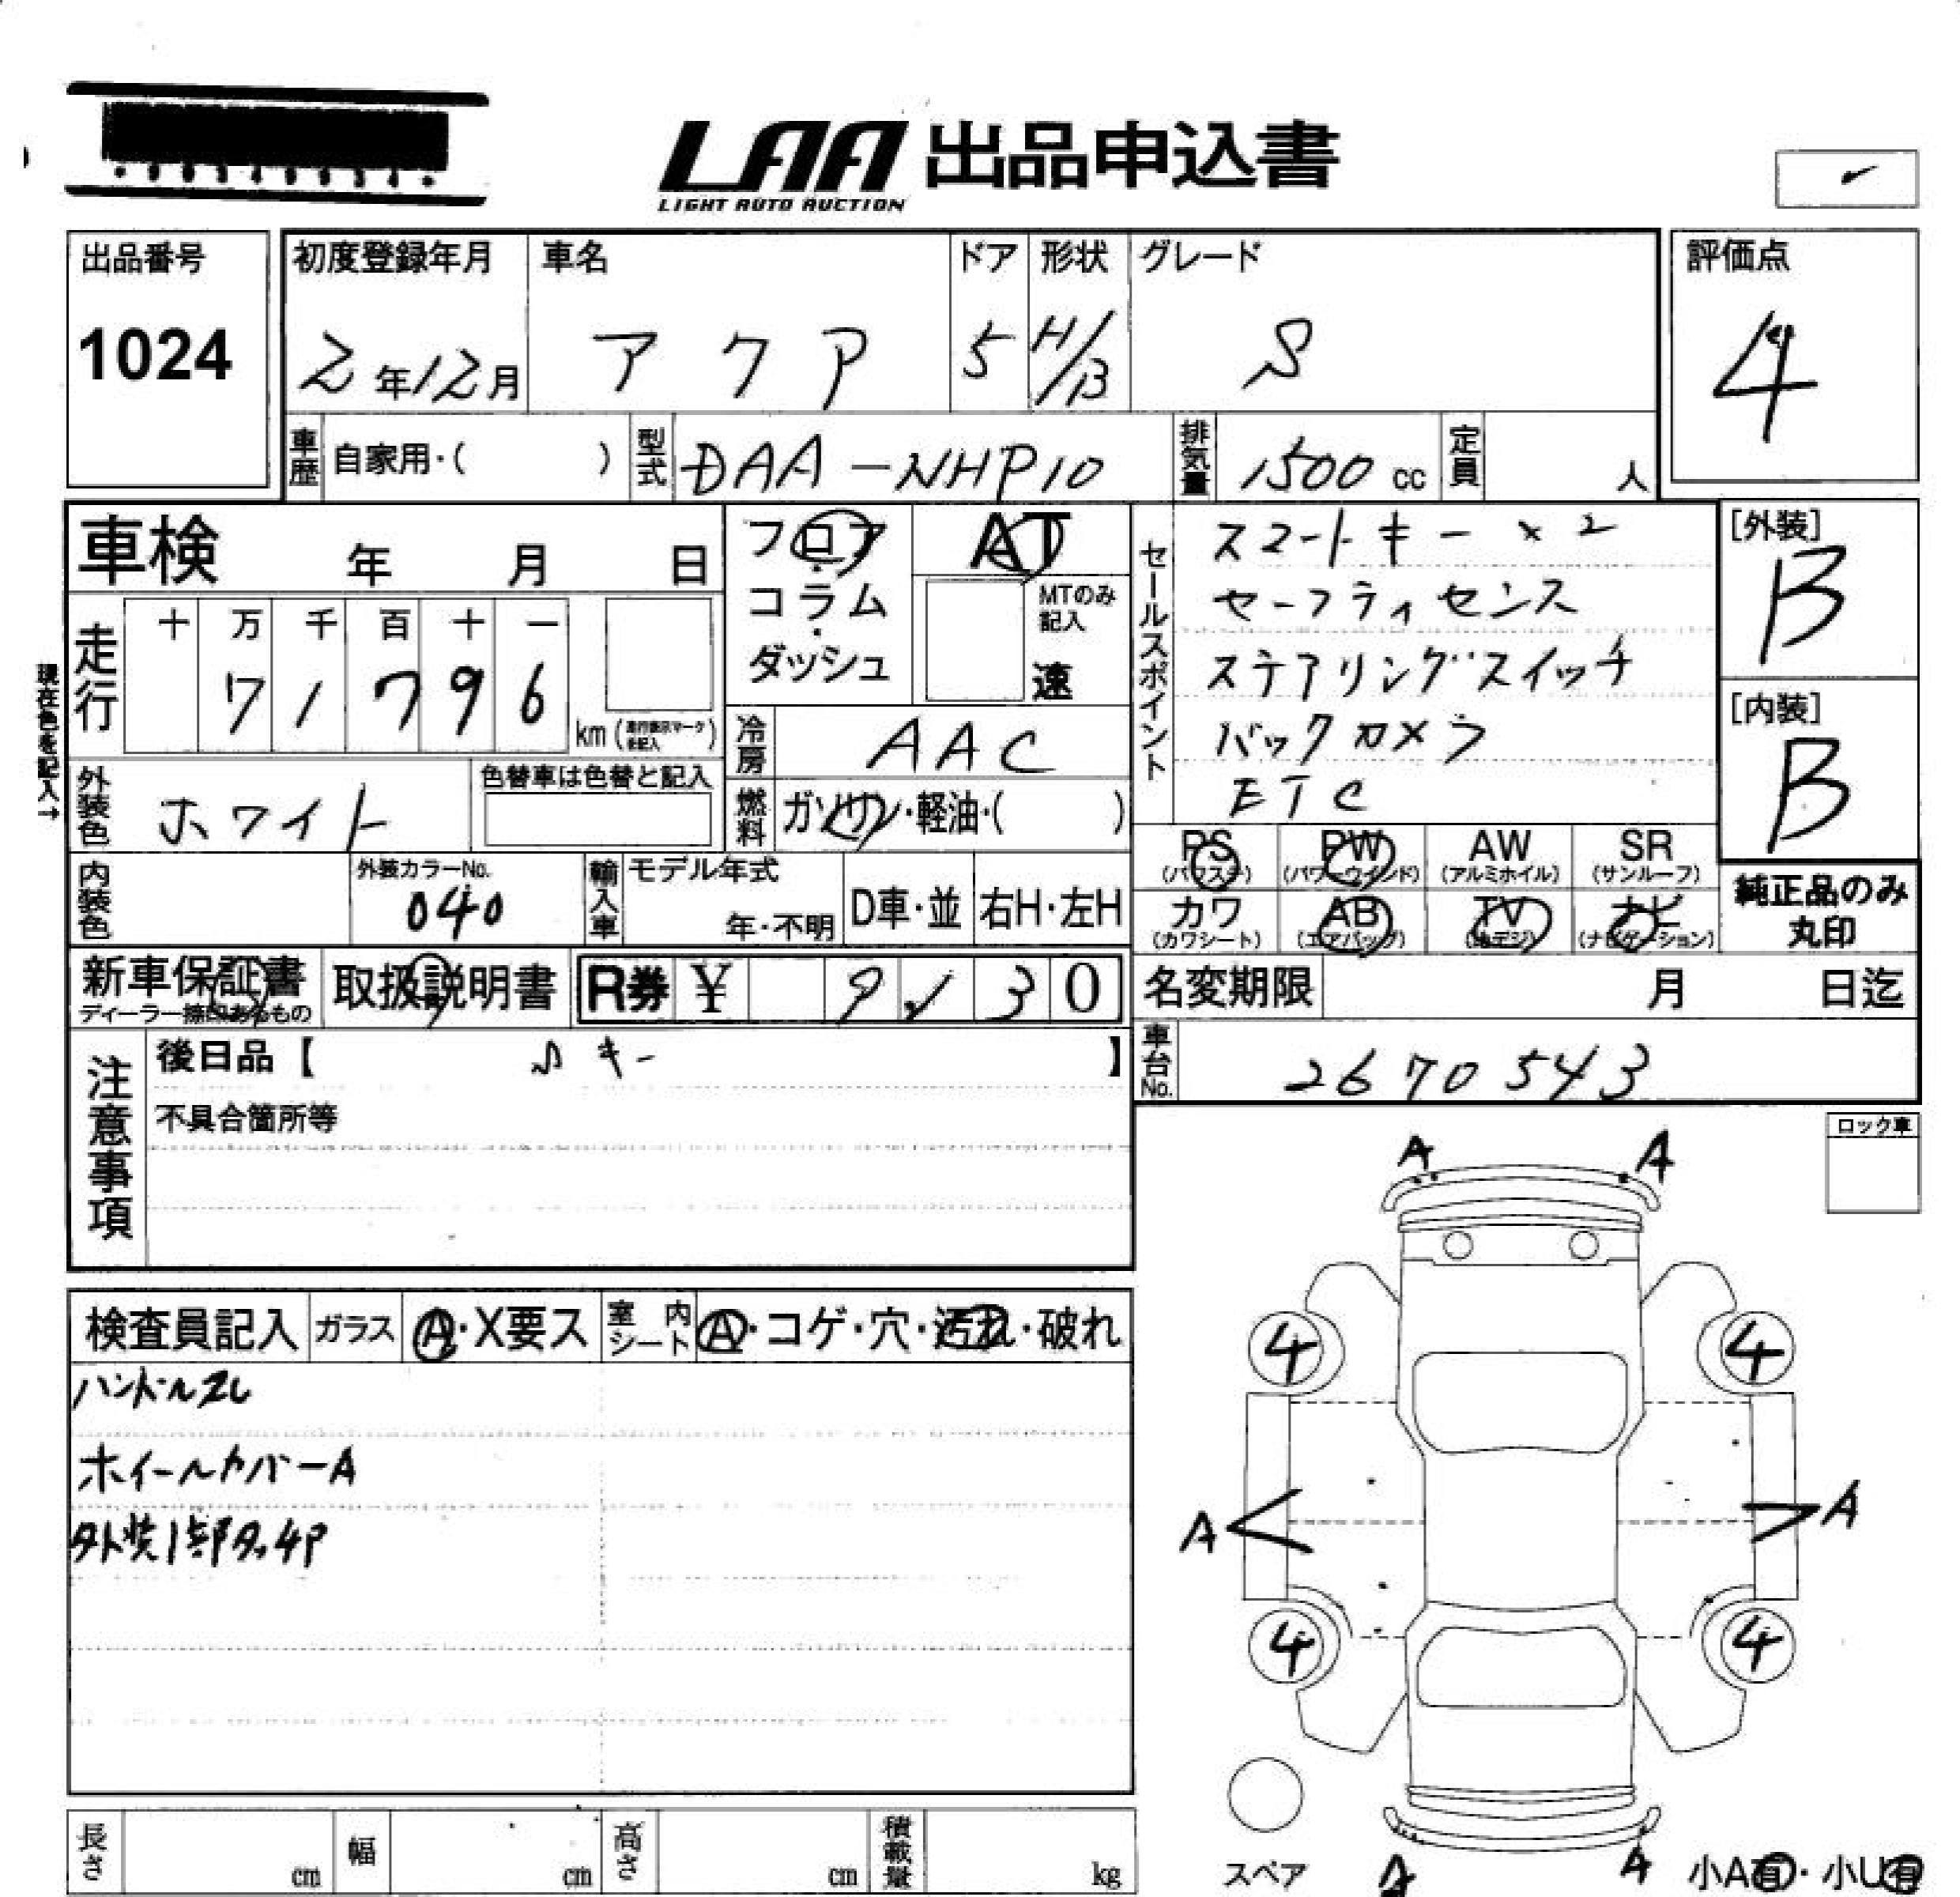 LAA 出品申込書
LIGHT AUTO AUCTION
出品番号
1024
初度登録年月
2年12月
車名
アクア
ドア
5
形状
H/B
グレード
S
評価点
4
車歴
自家用・( )
型式
DAA-NHP10
排気量
1500 cc
定員
人
車検 年 月 日
フロア・コラム・ダッシュ
AT
MTのみ記入
速
セールスポイント
スマートキー×2
セーフティセンス
ステアリングスイッチ
バックカメラ
ETC
[外装]
B
[内装]
B
現在色を記入→
走行
十 万 千 百 十 一
7 1 7 9 6
km
冷房
AAC
外装色
ホワイト
色替車は色替と記入
燃料
ガソリン・軽油・( )
PS
(パワステ)
PW
(パワーウインド)
AW
(アルミホイル)
SR
(サンルーフ)
カワ
(カワシート)
AB
(エアバッグ)
TV
(地デジ)
ナビ
(ナビゲーション)
純正品のみ
丸印
内装色
外装カラーNo.
040
輸入車
モデル年式
年・不明
D車・並
右H・左H
新車保証書
ディーラー捺印あるもの
取扱説明書
R券 ¥ 9 3 0
名変期限 月 日迄
車台No.
2670543
注意事項
後日品【 キー 】
不具合箇所等
ロック車
A A
検査員記入
ガラス
A・X要ス
室内シート
A・コゲ・穴・汚れ・破れ
ハンドルスレ
ホイールカバーA
外装1部タッチP
4 4
A A
4 4
スペア
A A
小A有・小U有
長さ cm
幅 cm
高さ cm
積載量 kg